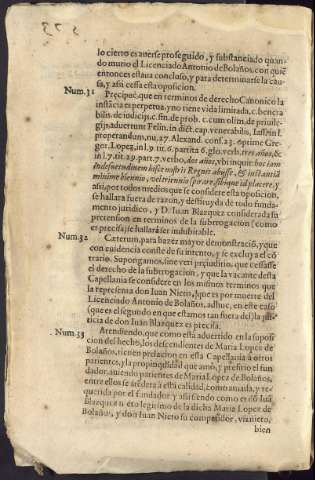 573
lo cierto es averse proseguido, y substanciado quan-
do murió el Licenciado Antonio de Bolaños, con quiē
entonces estava concluso, y para determinarse la cau-
sa, y assi cessa esta oposicion.
Num. 31 Precipuè, que en terminos de derecho Canonico la
instācia es perpetua, y no tiene vida limitada, c. venera
bilis. de iudicijs. c. fin. de prob. c. cum olim. de privile-
gijs, advertunt Felin. in dict. cap. venerabilis,
properandum, nu. 27. Alexand. cons. 23. optime Gre-
gor. Lopez, in l. 9. tit. 6. partita 6. glo. verb. tres años, &
in l. 7. tit. 29. part. 7. verbo, dos años, ubi inquit
consuetudinem hisce nostris Regnis & instantiā
biennio, vel triennio & y
assi por todos medios que se considere esta oposicion,
se hallara fuera de razon, y destituyda de todo funda-
mento juridico, y D. Iuan Blazquez considerada su
pretension en terminos de la subrrogacion (como
es precisa) se hallará ser indubitable.
Num. 32 Cæterum, para hazer mayor demonstració, y que
con euidencia conste de su intento, y se excluya el có
trario. Supongamos, sine veri prejudicio, que cessasse
el derecho de la subrrogacion, y que la vacante desta
Capellania se considere en los mismos terminos que
la representa don Iuan Nieto, que es por muerte del
Licenciado Antonio de Bolaños, adhuc, en este caso
(que es el segundo en que estamos tan fuera del) la jus-
ticia de don Iuan Blazquez es precisa.
Num. 33 Atendiendo, que como está advertido en la suposi
cion del hecho, los descendientes de Maria Lopez de
Bolaños, tienen prelacion en esta Capellania à otros
parientes, y la propinquidad que amó, y prefirio el fun
dador, siendo parientes de Maria Lopez de Bolaños,
entre ellos se à esta calidad, como amada, y re-
querida por el fundador y assi siendo como es dō Iuā
Blazquez nieto legitimo de la dicha Maria Lopez de
Bolaños, y don Iuan Nieto su competidor, visnieto,
bien